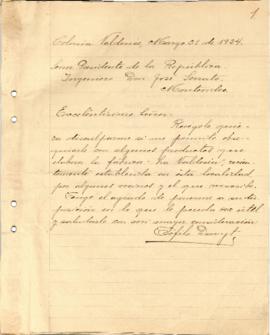 1
Colonia Valdense, Marzo 21 de 1924.
Señor Presidente de la República
Ingeniero Don José Serrato.
Montevideo.
Excelentísimo Señor:
Ruegole quiera
disculparme si me permito
con algunos productos que
elabora la fábrica "La Valdense",
establecida en esta localidad
por algunos vecinos y el que suscribe.
Tengo el agrado de ponerme a su
disposición en lo que le pueda ser útil
y saludarle con mi mayor consideración